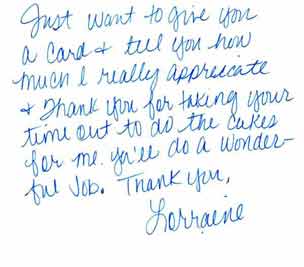 Just want to give you
a card & tell you how
much I really apprecate
& Thank you for taking your
time out to do the cakes
for me. You'll do a wonder-
ful Job. Thank you,
Lorraine